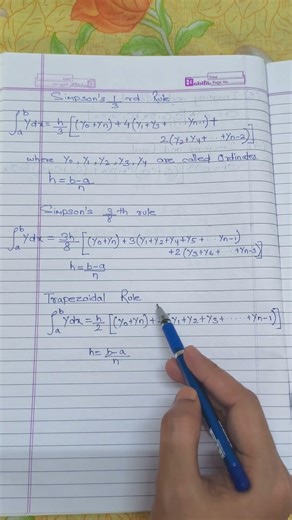 Simpson's 1/3 rd Rule
∫ₐᵇ ydx = h/3 [(y₀+yn) + 4(y₁+y₃+ ··· yn-1) +
2(y₂+y₄+ ··· +yn-2)]
where y₀, y₁, y₂, y₃, y₄ are called ordinates
h = b-a/n
Simpson's 3/8 th rule
∫ₐᵇ ydx = 3h/8 [(y₀+yn) + 3(y₁+y₂+y₄+y₅+ ·· yn-1)
+2(y₃+y₆+ ··· +yn-3)]
h = b-a/n
Trapezoidal Rule
∫ₐᵇ ydx = h/2 [(y₀+yn) + y₁+y₂+y₃+ ····· +yn-1)]
h = b-a/n